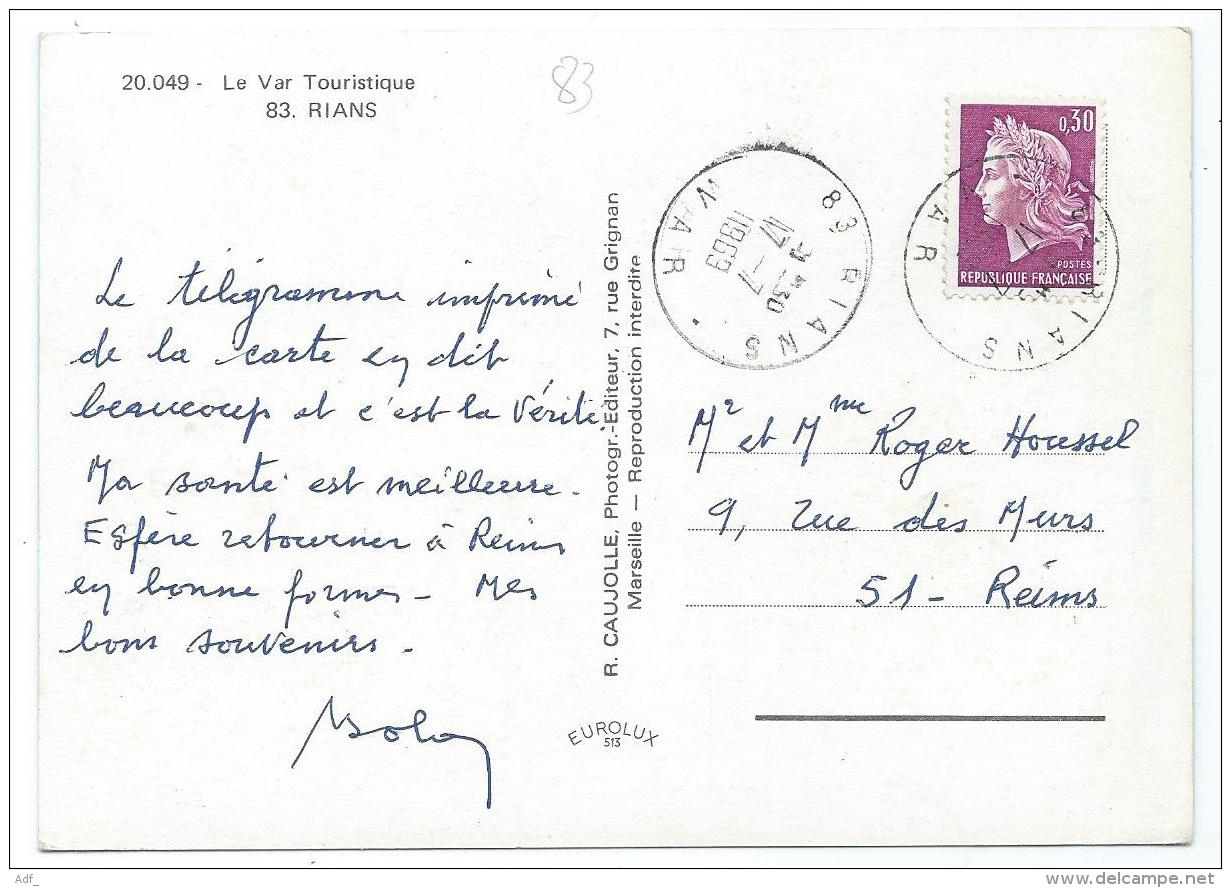 20.049 - Le Var Touristique
83. RIANS
83
Le télégramme imprimé
de la carte en dit
beaucoup et c'est la vérité
Ma santé est meilleure.
Espère retourner à Reims
en bonne forme - Mes
bons souvenirs.
R. CAUJOLLE, Photogr.-Editeur, 7, rue Grignan
Marseille — Reproduction interdite
EUROLUX
513
83 RIANS
VAR
17 H 30
17 - 7
1969
0,30
POSTES
REPUBLIQUE FRANÇAISE
RIANS
VAR
Mr et Mme Roger Houssel
9, rue des Murs
51 - Reims
Adf_
www.delcampe.net